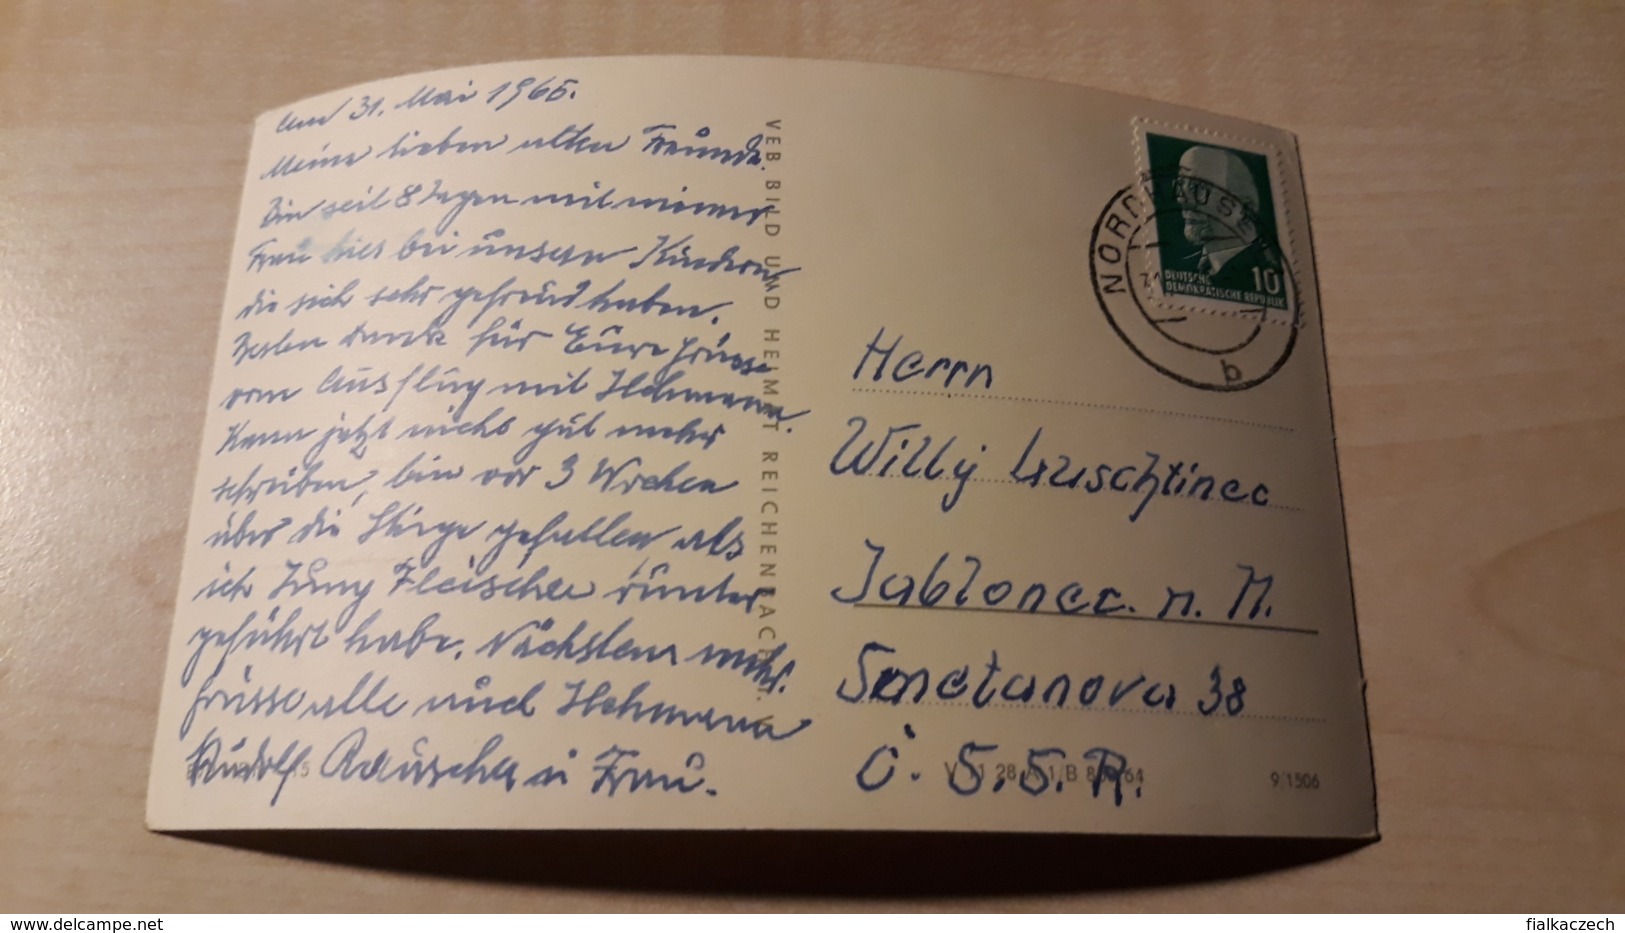 Am 31. Mai 1965.
Meine lieben alten Freunde.
Bin seit 8 Tagen mit meiner
Frau hier bei unsern Kindern
die sich sehr gefreut haben.
Besten Dank für Eure Grüsse
vom Ausflug mit Hehmann.
Kann jetzt nicht gut mehr
schreiben, bin vor 3 Wochen
über die Stiege gefallen als
ich Jung Fleischer runter
geführt habe. Nächstens mehr.
Grüsse alle auch Hehmann
Rudolf Rauscher u Frau.
VEB BILD UND HEIMAT REICHENBACH
NORDHAUSEN
b
10
DEUTSCHE
DEMOKRATISCHE REPUBLIK
Herrn
Willy Luschtinec
Jablonec. n. N.
Smetanova 38
Č. S. S. R.
9/1506
delcampe.net
fialkaczech